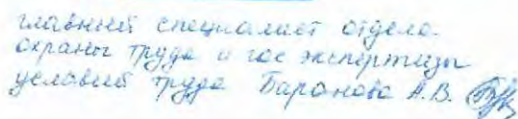 главный специалист отдела
охраны труда и гос экспертизы
условий труда Баранова А.В.